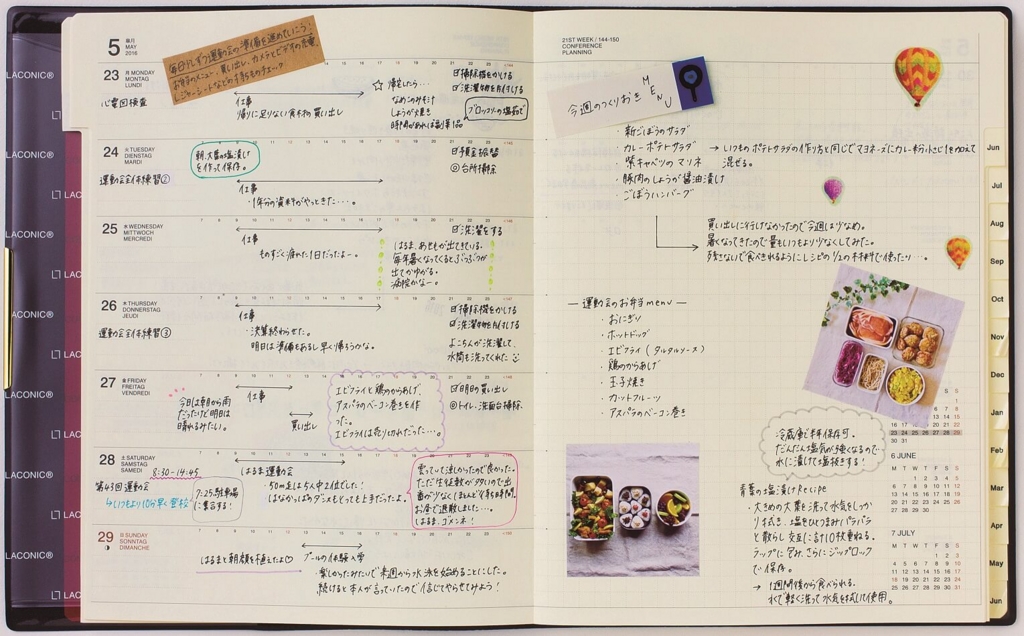 5 皐月
MAY
2016
毎日少しずつ運動会の準備を進めていこう!
お弁当のメニュー、買い出し、カメラとビデオの充電、
レジャーシートなどの手持ちのチェック
23 月 MONDAY
MONTAG
LUNDI
心電図検査
仕事
帰りに足りない食材の買い出し
☆ 帰宅したら…
なめこのみそ汁
しょうが焼き
時間があれば副菜1品
ブロッコリーの塩茹で
☑掃除機をかける
☑洗濯物を片付ける
24 火 TUESDAY
DIENSTAG
MARDI
運動会全体練習②
朝、大葉の塩漬け
を作って保存。
仕事
・1年分の資料がやっときた…。
☑預金振替
◎台所掃除
25 水 WEDNESDAY
MITTWOCH
MERCREDI
仕事
ものすごく疲れた1日だったよー。
☑洗濯をする
はるま、あせもが出てきている。
毎年暑くなってくるとぶつぶつが
出てかゆがる。
病院かなー。
26 木 THURSDAY
DONNERSTAG
JEUDI
運動会全体練習③
仕事
・決算終わらせた。
明日は準備もあるし早く帰ろうかな。
☑掃除機をかける
☑洗濯物を片付ける
よこちんが洗濯して、
水筒も洗ってくれた
27 金 FRIDAY
FREITAG
VENDREDI
今日は朝から雨
だったけど明日は
晴れるみたい。
仕事
買い出し
エビフライと鶏のからあげ、
アスパラのベーコン巻きを作
った。
エビフライは売り切れだった…。
☑明日の買い出し
◎トイレ、洗面台掃除
28 土 SATURDAY
SAMSTAG
SAMEDI
8:30-14:45
第43回運動会
↳いつもより10分早く登校
7:25駐車場
に集合する!
はるま運動会
・50m走は5人中2位でした!
はなかっぱのダンスもとっても上手だったよ。
曇っていて涼しかったので良かった。
ただ生徒数が多いので出
番が少なくほとんど待ち時間。
お昼で退散しました…。
はるま、ゴメンネ!
29 日 SUNDAY
SONNTAG
DIMANCHE
はるまと朝顔を植えたよ♡
プールの体験入学
・楽しかったみたいで来週から水泳を始めることにした。
続けると本人が言っていたので信じてやらせてみよう!
LACONIC®
LACONIC®
LACONIC®
LACONIC®
LACONIC®
LACONIC®
LACONIC®
21ST WEEK / 144-150
CONFERENCE
PLANNING
今週のつくりおき
MENU
・新ごぼうのサラダ
・カレーポテトサラダ → いつものポテトサラダの作り方と同じでマヨネーズにカレー粉小さじ1を加えて
混ぜる。
・紫キャベツのマリネ
・豚肉のしょうが醤油漬け
・ごぼうハンバーグ
買い出しに行けなかったので今週は少なめ。
暑くなってきたので量もいつもより少なくしてみた。
残さないで食べきれるようにレシピの1/2の材料で使ったり…。
― 運動会のお弁当menu ―
・おにぎり
・ホットドッグ
・エビフライ(タルタルソース)
・鶏のからあげ
・玉子焼き
・カットフルーツ
・アスパラのベーコン巻き
冷蔵庫で半年保存可。
だんだん塩気が強くなるので
水に漬けて塩抜きする!
青葉の塩漬けRecipe
・大きめの大葉を洗って水気をしっか
り拭き、塩をひとつまみパラパラ
と散らし交互に計10枚重ねる。
ラップに包み、さらにジップロック
で保存。
→ 1週間後から食べられる。
水で軽く洗って水気を拭いて使用。
23 24 25 26 27 28 29
30 31
6 JUNE
M T W T F S S
7 JULY
M T W T F S S
Jun
Jul
Aug
Sep
Oct
Nov
Dec
Jan
Feb
Mar
Apr
May
Jun